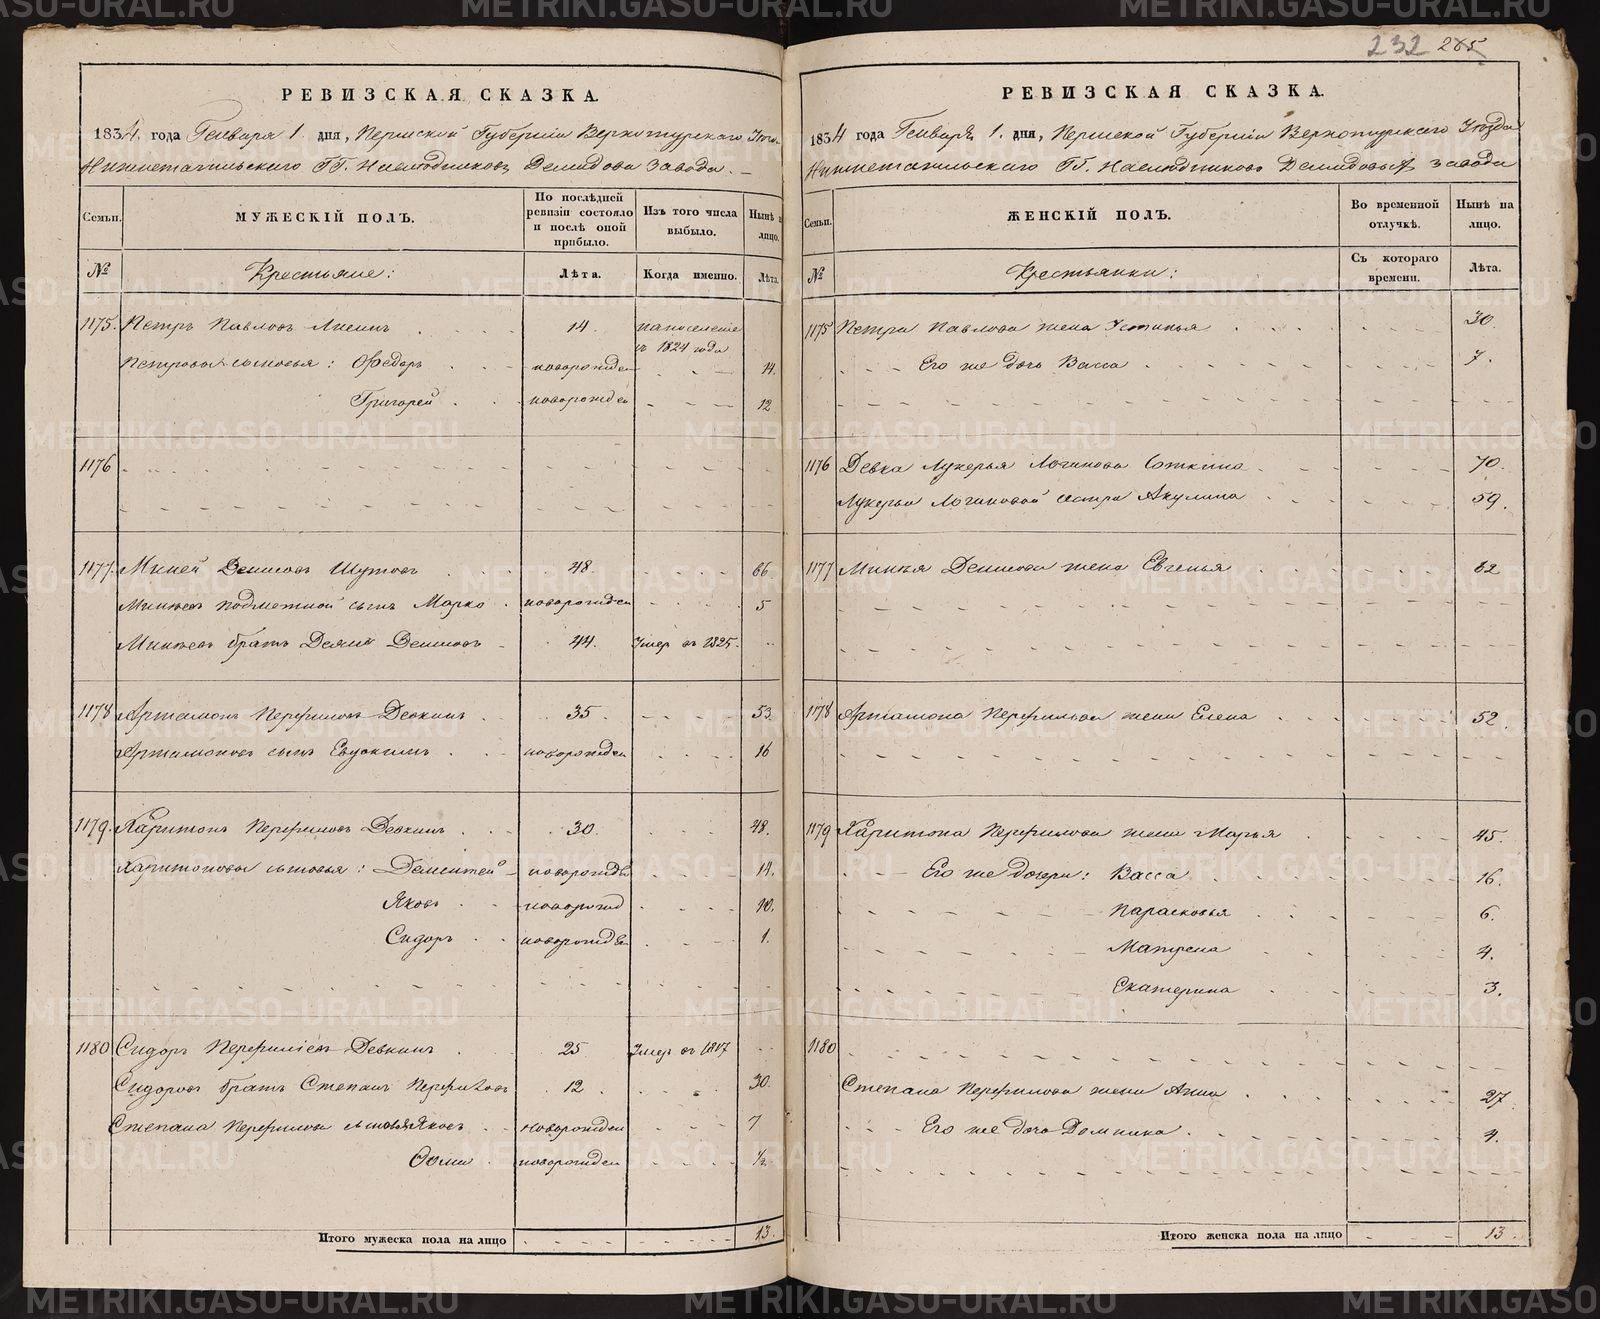 232 285
РЕВИЗСКАЯ СКАЗКА.
1834. года Генваря 1. дня, Пермской Губерніи Верхотурскаго
Нижнетагильскаго ГГ. Наследниковъ Демидова завода.
Семьи. МУЖЕСКІЙ ПОЛЪ. По послѣдней ревизіи состояло и послѣ оной прибыло. Изъ того числа выбыло. Нынѣ на лицо.
№ Крестьяне: Лѣта. Когда именно. Лѣта.
1175. Петръ Павловъ 14. на поселеніе съ 1824 года
Петровы сыновья: Ѳедоръ новорожден 14.
Григорей новорожден 12
1176
1177. Миней Денисовъ Шутовъ 48. 66.
Минѣевъ подметной сынъ Марко новорожден 5
Минѣевъ братъ Денисовъ 44. Умер въ 1825.
1178 Артамонъ Перфиловъ Девкинъ 35. 53.
Артамоновъ сынъ Евдокимъ новорожден 16
1179. Харитонъ Перфиловъ Девкинъ 30. 48.
Харитоновы сыновья: Дементей новорожде 14.
Яковъ новорожд 10.
Сидоръ новорожден 1.
1180 Сидоръ Перфиліевъ Девкинъ 25 Умер въ 1817
Сидоровъ братъ Степанъ Перфиловъ 12 30.
Степана Перфилова сыновья Яковъ новорожден 7
Ѳома новорожден 1/2.
Итого мужеска пола на лицо 13.
РЕВИЗСКАЯ СКАЗКА.
1834 года Генваря 1. дня, Пермской Губерніи Верхотурскаго Уезда
Нижнетагильскаго ГГ. Наследниковъ Демидовыхъ завода
Семьи. ЖЕНСКІЙ ПОЛЪ. Во временной отлучкѣ. Нынѣ на лицо.
№ Крестьянки: Съ котораго времени. Лѣта.
1175 Петра Павлова жена Устинья 30.
Его же дочь Васса 7.
1176 Девка Лукерья Логинова 70.
Лукерьи Логиновой сестра Акулина 59.
1177 Минѣя Денисова жена Евгенья 62
1178 Артамона Перфильва жена Елена 52.
1179 Харитона Перфилова жена Марья 45.
Его же дочери: Васса 16.
Парасковья 6.
Матрена 4.
Екатерина 3.
1180
Степана Перфилова жена Анна 27.
Его же дочь Домника 4.
Итого женска пола на лицо 13.